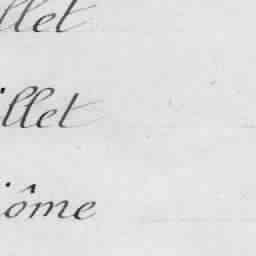 llet
illet
iôme